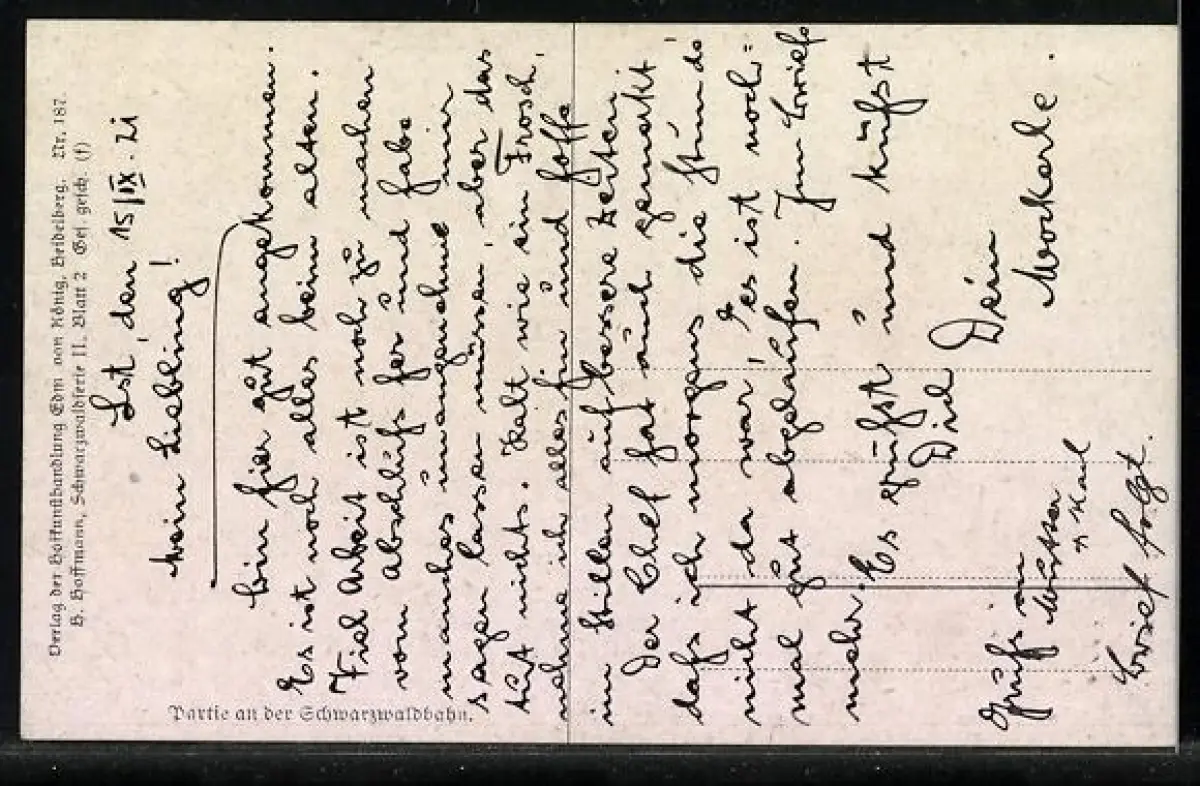 Verlag der Hofkunsthandlung Edm. von König, Heidelberg. Nr. 187.
H. Hoffmann, Schwarzwaldserie II. Blatt 2 Ges. gesch. (f)
Partie an der Schwarzwaldbahn.
den 15/IX. 21
Mein Liebling!
Bin hier gut angekommen.
Es ist noch alles beim alten.
Viel Arbeit ist noch zu machen
vom Abschluss her und habe
manches unangenehme mir
sagen lassen müssen, aber das
tut nichts. Kalt wie ein Frosch,
nehme ich alles hin und hoffe
im Stillen auf bessere Zeiten.
Der Chef hat auch gemerkt
dass ich morgens die Stunde
nicht da war, es ist noch=
mal gut abgelaufen. Im Briefe
mehr.
Es grüsst und küsst
Dich
Dein
Mockerle.
Gruss an
Mutter
& Karl
Brief folgt.